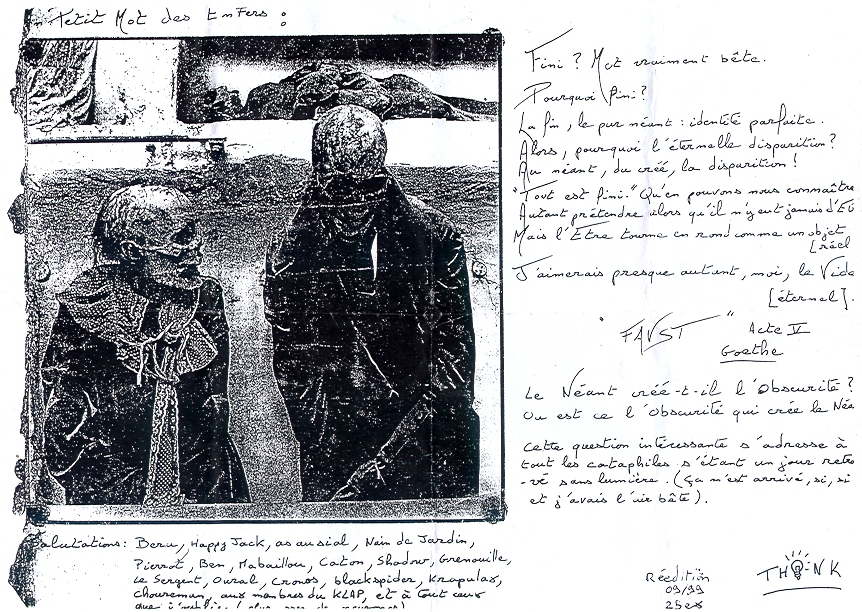 Petit Mot des Enfers :
Fini ? Mot vraiment bête.
Pourquoi fini ?
La fin, le pur néant : identité parfaite.
Alors, pourquoi l'éternelle disparition ?
Au néant, du créé, la disparition !
"Tout est fini." Qu'en pouvons nous connaître
Autant prétendre alors qu'il n'y eut jamais d'Et
Mais l'Etre tourne en rond comme un objet
[réel
J'aimerais presque autant, moi, le Vide
[éternel].
"FAUST" Acte V
Goethe
Le Néant créé-t-il l'Obscurité ?
Ou est ce l'Obscurité qui crée le Néa
Cette question intéressante s'adresse à
tout les cataphiles s'étant un jour retro
-vé sans lumière. (Ça m'est arrivé, si, si
et j'avais l'air bête).
Salutations : Beru, Happy Jack, as au sial, Nain de Jardin,
Pierrot, Ben, Mabaillou, Caton, Shadow, Grenouille,
Le Sergent, Oural, Cronos, blackspider, Krapulax,
choureman, aux membres du KLAP, et à tout ceux
que j'oublie (
Réédition
09/99
25ex
THINK